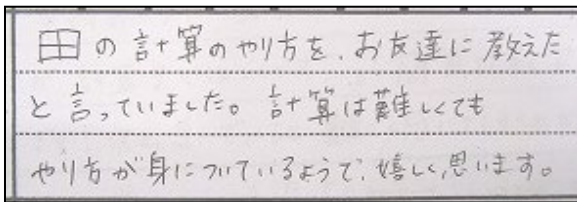 田の計算のやり方を、お友達に教えた
と言っていました。計算は難しくても
やり方が身についているようで、嬉しく思います。